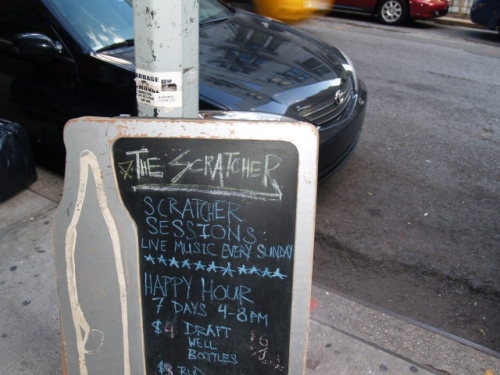 GARBAGE
THE SCRATCHER
SCRATCHER
SESSIONS
LIVE MUSIC EVERY SUNDAY
HAPPY HOUR
7 DAYS 4-8PM
$4 DRAFT
WELL
BOTTLES